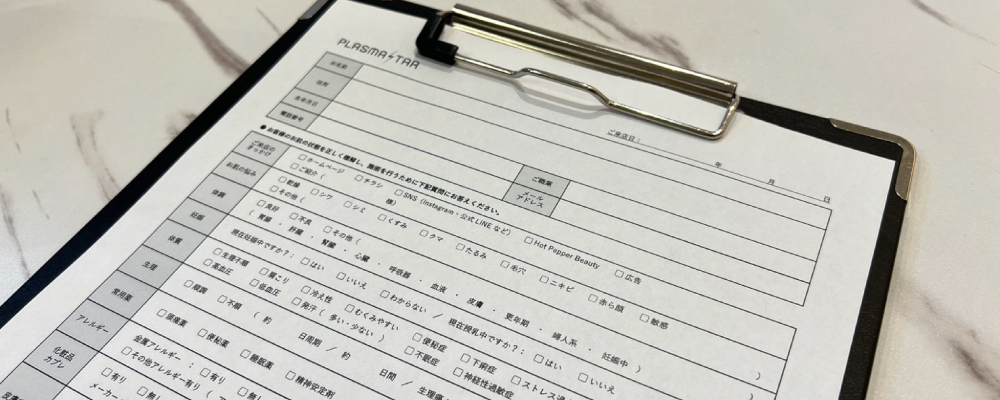 PLASMA STAR
ご来店日： 年 月 日
お名前
住所
生年月日 ご職業
電話番号 メールアドレス
●お客様のお肌の状態を正しく理解し、施術を行うために下記質問にお答えください。
ご来店のきっかけ □ホームページ □チラシ □SNS（Instagram・公式LINEなど） □Hot Pepper Beauty □広告
□ご紹介（ 様）
お肌の悩み □乾燥 □シワ □シミ □くすみ □クマ □たるみ □毛穴 □ニキビ □赤ら顔 □敏感
□その他（
体調 □良好 □不良 □その他（ ）
（ 胃腸 ・ 肝臓 ・ 腎臓 ・ 心臓 ・ 呼吸器 ・ 血液 ・ 皮膚 ・ 更年期 ・ 婦人系 ・ 妊娠中 ）
妊娠 現在妊娠中ですか？： □はい □いいえ □わからない ／ 現在授乳中ですか？： □はい □いいえ
体質 □生理不順 □肩こり □冷え性 □むくみやすい □便秘症 □下痢症 □ストレス過
□高血圧 □低血圧 □発汗（ 多い・少ない ） □不眠症 □神経性過敏症
生理 □順調 □不順 （ 約 日周期 ／ 約 日間 ／ 生理痛
常用薬 □頭痛薬 □便秘薬 □睡眠薬 □精神安定剤
アレルギー 金属アレルギー： □有り □無し
□その他アレルギー有り（
化粧品カブレ □有り □無し
メーカー